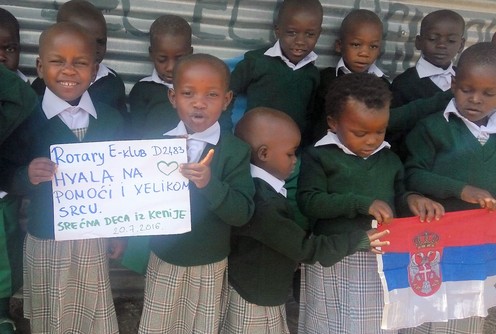 Rotary E-klub D2483
HVALA NA
POMOĆI I VELIKOM
SRCU.
SREĆNA DECA IZ KENIJE
20.7.2016